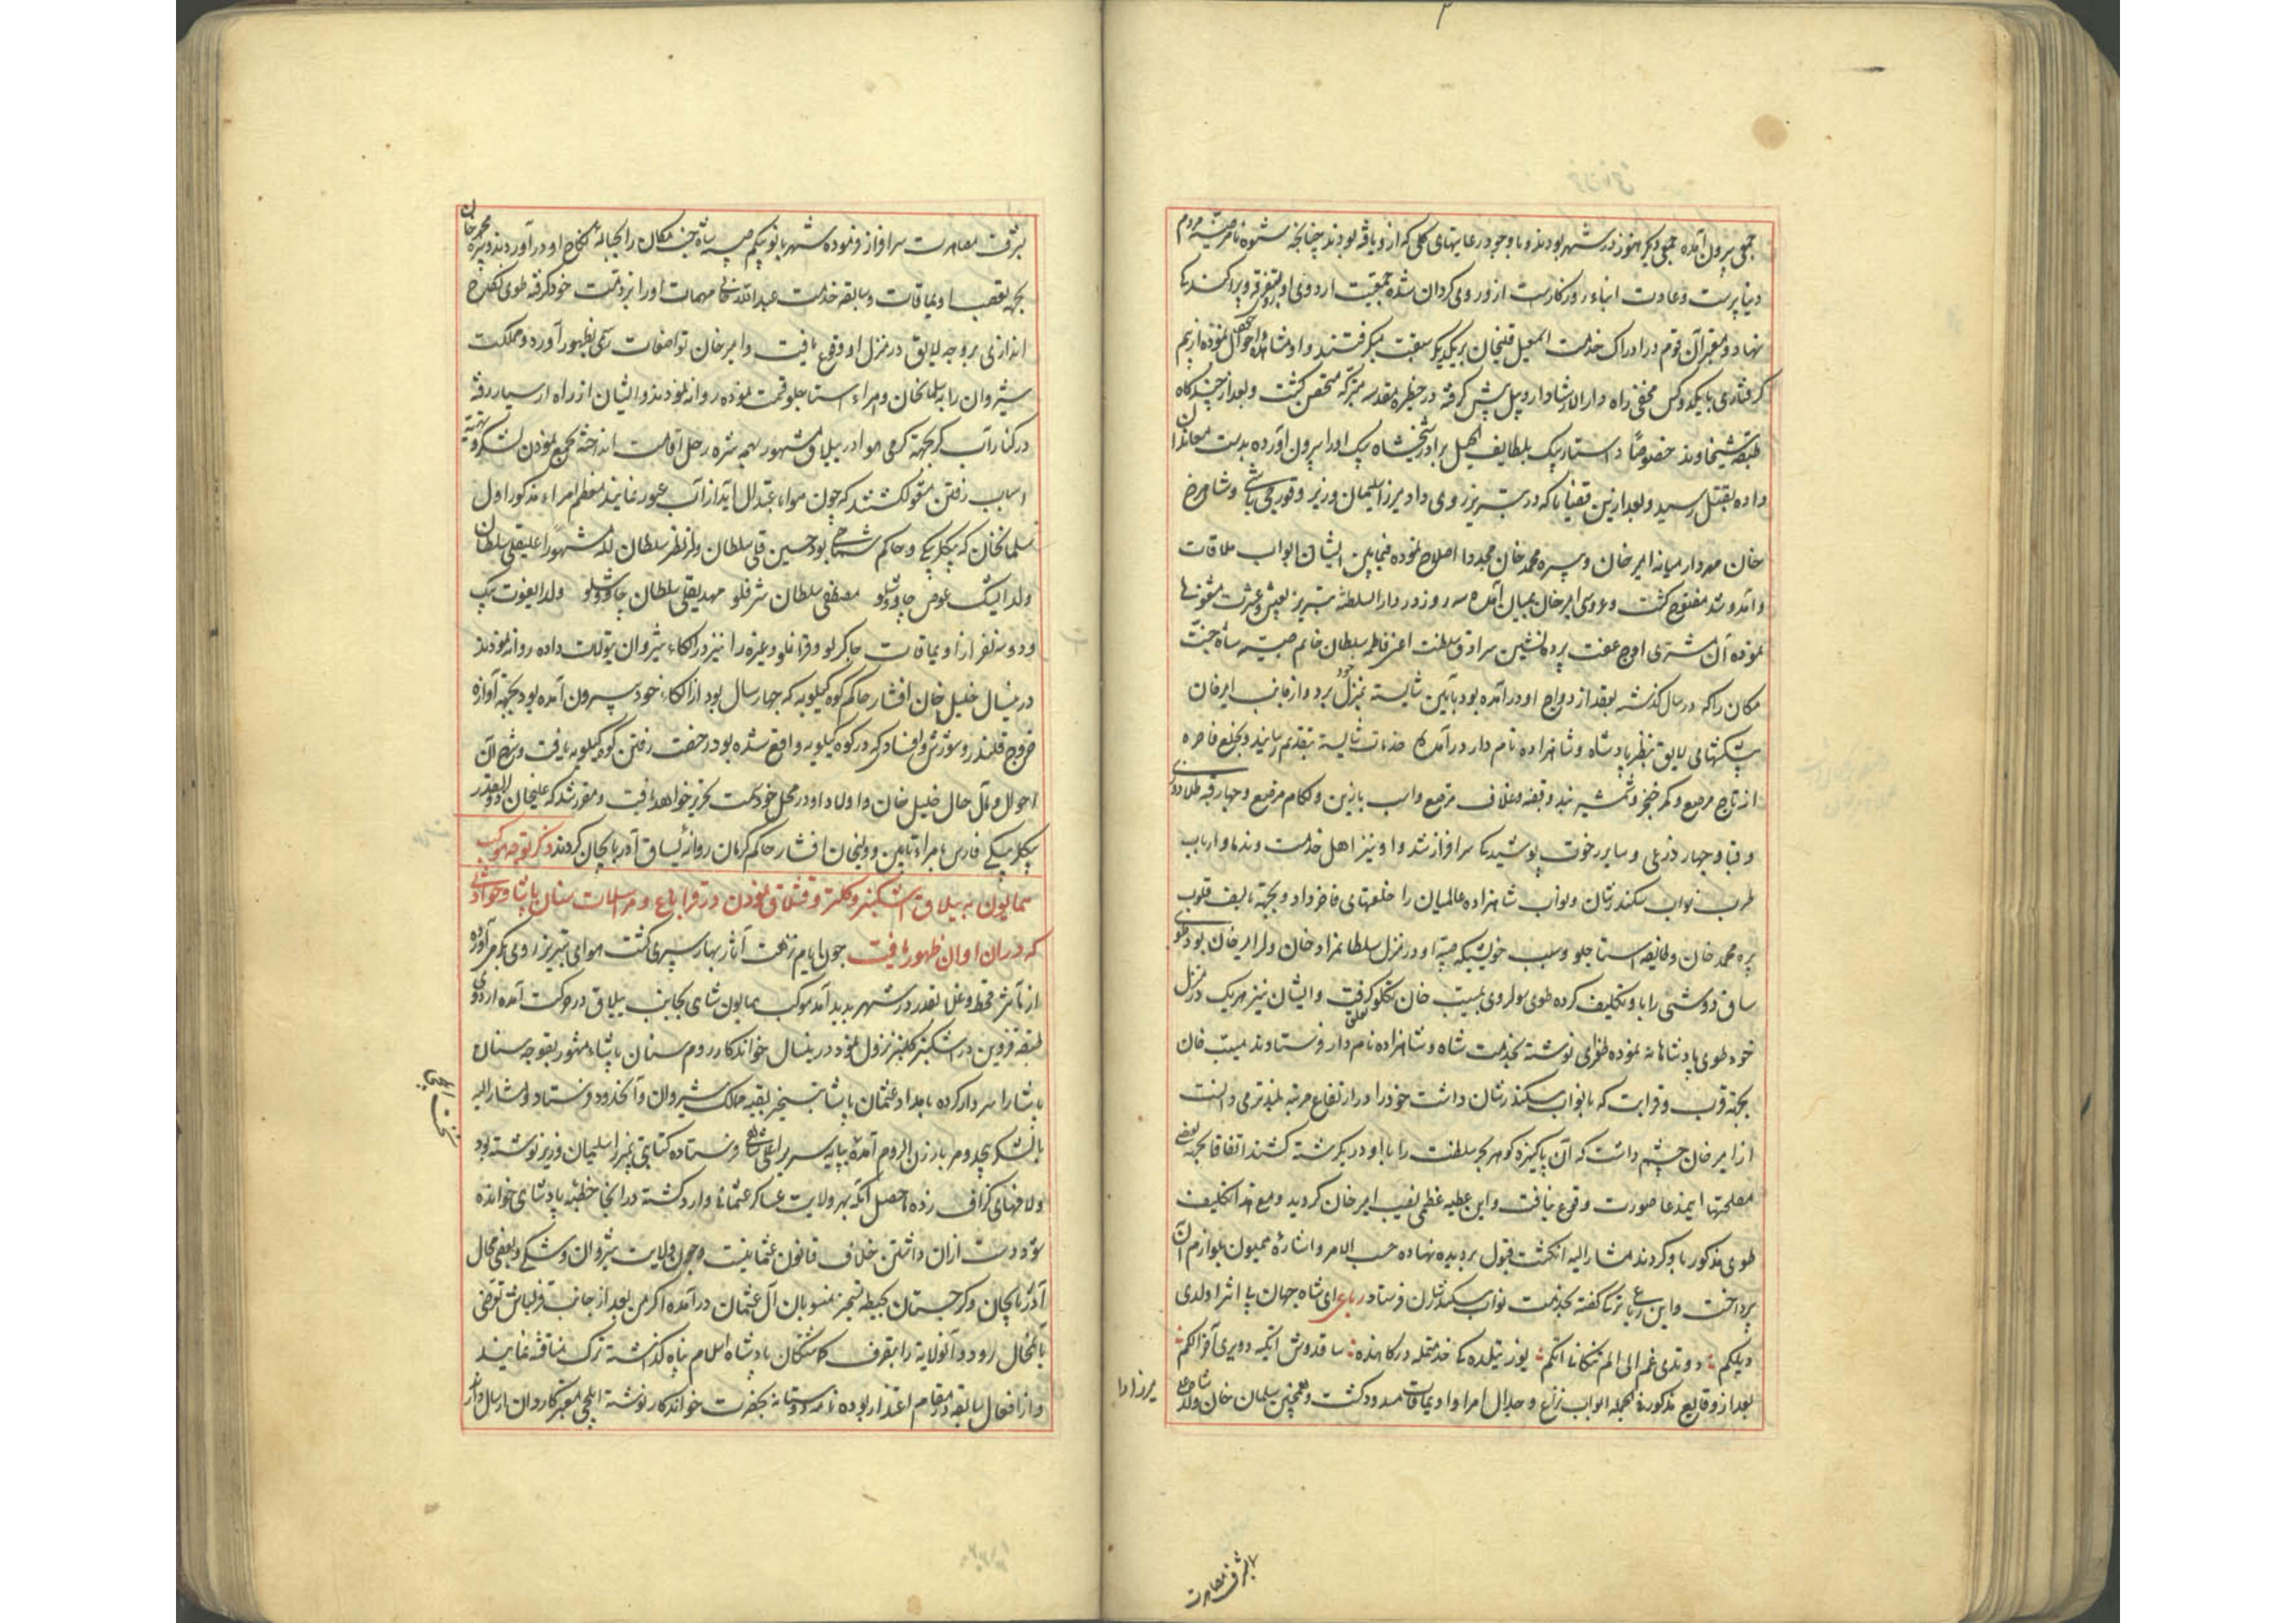 جمعی بیرون آمده جمعی دیگر هنوز در شهر بودند و با وجود رعایتهای کلی که ازو یافته بودند چنانچه شیوه نامرضیه مردم
دنیا پرست و عادت ابناء روزگارست ازو روی گردان شده جمعیت اردوی او بتفرقه و پراکندگی
نهاد و معتبر آن قوم در ادراک خدمت اسمعیل قلیخان بر یکدیگر سبقت میگرفتند و او مشاهده احوال نموده از بیم
گرفتاری با یکدو کس مخفی راه دارالارشاد اردبیل پیش گرفته در حظیره مقدسه متبرکه متحصن گشت و بعد از چندگاه
طبقه شیخاوند خصوصاً بلطایف الحیل برادر شاه بیک او را بیرون آورده بدست معاندان
داده بقتل رسید و بعد ازین قضایا که در تبریز روی داد میرزا سلیمان وزیر و قورچی باشی و شاهرخ
خان مهردار میانه امیر خان و پیره محمد خان مجددا اصلاح نموده فیمابین ایشان ابواب ملاقات
و آمد و شد مفتوح گشت و عروسی امیر خان بمیان آمده سه روز در دارالسلطنه تبریز بعیش و عشرت مشغولی
نموده آن مشتری اوج عفت پرده نشین سرادق سلطنت اعنی فاطمه سلطان خانم صبیه شاه جنت
مکان را که در سال گذشته بعقد ازدواج او درآمده بود بآیین شایسته بمنزل خود برد و از جانب امیر خان
پیشکشهای لایق بنظر پادشاه و شاهزاده نام دار درآمده خدمات شایسته بتقدیم رسانید و بخلع فاخره
از تاج مرصع و کمر خنجر و شمشیر بند و قبضه و غلاف مرصع و اسب با زین و لگام مرصع و چهارقب طلادوزی
و قبا و چهار ذرعی و سایر رخوت پوشیدنی سرافراز شد و او نیز اهل خدمت و ندما و ارباب
طرب نواب سکندرشان و نواب شاهزاده عالمیان را خلعتهای فاخر داد و بجهة تالیف قلوب
پیره محمد خان و طایفه استاجلو و سبب خویشی که صبیه او در منزل سلطان مراد خان ولد امیر خان بود طوی
ساق دوشی را باو تکلیف کرده طوی سولدوی بمسیب خان تکلو تعلق گرفت و ایشان نیز هر یک در منزل
خود طوی پادشاهانه نموده طغرای نوشته بخدمت شاه و شاهزاده نام دار فرستادند مسیب خان
بجهة قرب و قرابت که با نواب سکندرشان داشت خود را در ارتفاع مرتبه بلندتر می دانست
از امیر خان چشم داشت که آن پاکیزه گوهر بحر سلطنت را با او در یک رشته کشند اتفاقا بجهة بعضی
مصلحتها ایمدعا صورت وقوع نیافت و این عطیه عظمی نصیب امیر خان گردید و مع هذا تکلیف
طوی مذکور باو کردند مشارالیه انگشت قبول بر دیده نهاده حسب الامر و اشاره همیون بلوازم آن
پرداخت و این رباعی ترکی گفته بخدمت نواب سکندرشان فرستاد رباعی ای شاه جهان
دیلکم
بعد از وقایع مذکوره فی الجمله ابواب نزاع و جدال امرا و اویماقات مسدود گشت و همچنین سلمان خان ولد شاه علی
میرزا را
بشرف مصاهرت
بشرف مصاهرت سرافراز فرموده شهربانو بیگم صبیه شاه جنت مکان را بحباله نکاح او درآوردند و پیره محمد خان
بجهة تعصب اویماقات و سابقه خدمت عبدالله خانی مهمات او را بر ذمت خود گرفته طوی نکاح
اندازی بر وجه لایق در منزل او وقوع یافت و امیر خان تواضعات رسمی بظهور آورده مملکت
شیروان را بسلمانخان و امراء استاجلو قسمت نموده روانه نمودند و ایشان از راه ارسبار رفته
در کنار آب کر بجهة گرمی هوا در ییلاق مشهور رحل اقامت انداخته بجمع نمودن لشکر و تهیه
اسباب رفتن مشغول گشتند که چون هوا باعتدال آید از آب عبور نمایند معظم امراء مذکور اول
سلمانخان که بیگلربیگی و حاکم شماخی بود حسین قلی سلطان ولد نظر سلطان لله مشهور علیقلی سلطان
ولد ایبک عوض چاوشلو مصطفی سلطان شرفلو مهدیقلی سلطان چاوشلو ولد ایغوت بیک
و دو سه نفر از اویماقات چاکرلو و قرامانلو و غیره را نیز در الکاء شیروان تیولات داده روانه نمودند
درینسال خلیل خان افشار حاکم کوه کیلویه که چهار سال بود از الکاء خود بیرون آمده بود بجهة آوازه
خروج قلندر و شورش و افساد که در کوه کیلویه واقع شده بود رخصت رفتن کوه کیلویه یافت و شرح آن
احوال و مآل حال خلیل خان و اولاد او در محل خود سمت تحریر خواهد یافت و مقرر شد که علیخان ذوالقدر
بیگلربیگی فارس با امراء تابین و ولیخان افشار حاکم کرمان روانه یساق آذربایجان گردند ذکر توجه موکب
همایون به ییلاق اشکنبر و کلنبر و قشلاق نمودن در قراباغ و مراسلات سنان پاشا و حوادثی
که در ان اوان ظهور یافت چون ایام نزهت آثار بهار سپری گشت هوای تبریز روی بگرمی آورده
از تأثیر قحط و غلا تعذر در شهر پدید آمد موکب همایون شاهی بجانب ییلاق در حرکت آمده اردوی
در اشکنبر کلنبر نزول نمود درینسال خواندکار روم سنان پاشاء مشهور بقوجه سنان
پاشا را سردار کرده بامداد عثمان پاشا بتسخیر بقیه ممالک شیروان و آنحدود فرستاد و مشارالیه
با لشکر بیحد و مر بارزن الروم آمده بپایه سریر اعلی شاهی فرستاده کتابتی بمیرزا سلیمان وزیر نوشته بود
و لافهای گزاف زده ماحصل آنکه بهر ولایت عساکر عثمانی وارد گشته در انجا خطبه پادشاهی خوانده
شود دست ازان داشتن خلاف قانون عثمانیست و چون ولایت شیروان و شکی و بعضی محال
آذربایجان و گرجستان بحیطه تسخیر منسوبان آل عثمان درآمده اگر من بعد از جانب قزلباش تعرضی
بانمحال رود و آنولایة را بتصرف گماشتگان پادشاه اسلام پناه گذاشته ترک مناقشه نمایند
و از افعال سابقه در مقام اعتذار بوده نامه دوستانه بحضرت خواندکار نوشته ایلچی معتبر کاردان ارسال دارند